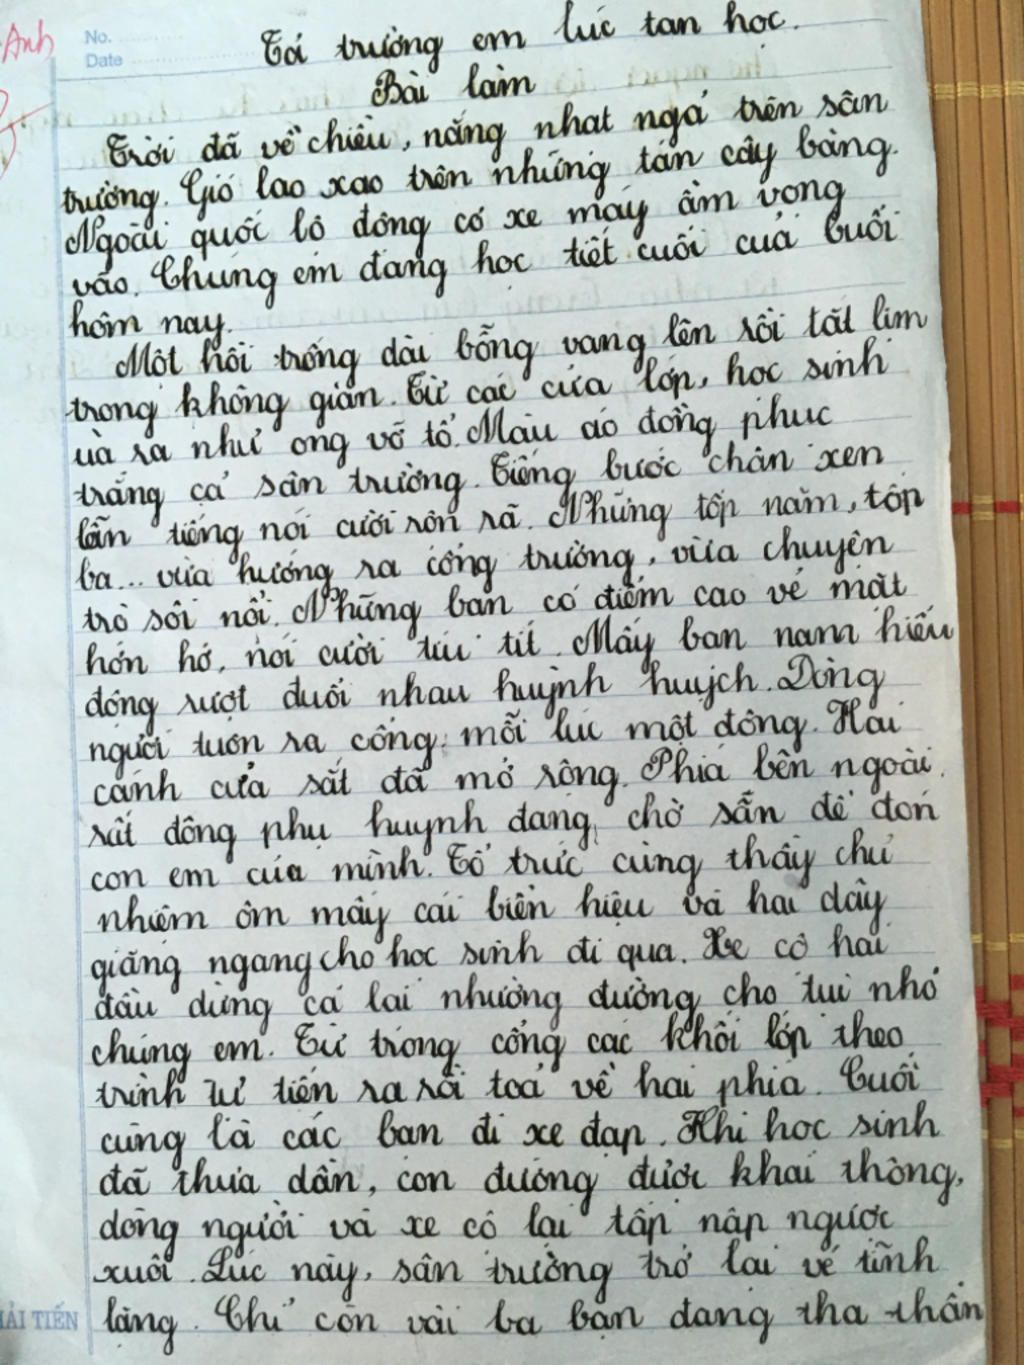 Anh
No. ............
Date ....................
Tả trường em lúc tan học.
Bài làm
Trời đã về chiều, nắng nhạt ngả trên sân
trường. Gió lao xao trên những tán cây bàng.
Ngoài quốc lộ động cơ xe máy ầm vọng
vào. Chúng em đang học tiết cuối của buổi
hôm nay.
Một hồi trống dài bỗng vang lên rồi tắt lịm
trong không gian. Từ các cửa lớp, học sinh
ùa ra như ong vỡ tổ. Màu áo đồng phục
trắng cả sân trường. Tiếng bước chân xen
lẫn tiếng nói cười rôn rã. Những tốp năm, tốp
ba... vừa hướng ra cổng trường, vừa chuyện
trò sôi nổi. Những bạn có điểm cao vẻ mặt
hớn hở, nói cười tíu tít. Mấy bạn nam hiếu
động rượt đuổi nhau huỳnh huỵch. Dòng
người tuôn ra cổng mỗi lúc một đông. Hai
cánh cửa sắt đã mở rộng. Phía bên ngoài
rất đông phụ huynh đang chờ sẵn để đón
con em của mình. Tổ trực cùng thầy chủ
nhiệm ôm mấy cái biển hiệu và hai dây
giăng ngang cho học sinh đi qua. Xe cộ hai
đầu dừng cả lại nhường đường cho tụi nhỏ
chúng em. Từ trong cổng các khối lớp theo
trình tự tiến ra rồi toả về hai phía. Cuối
cùng là các bạn đi xe đạp. Khi học sinh
đã thưa dần, con đường được khai thông,
dòng người và xe cộ lại tấp nập ngược
xuôi. Lúc này, sân trường trở lại vẻ tĩnh
lặng. Chỉ còn vài ba bạn đang tha thẩn
HẢI TIẾN